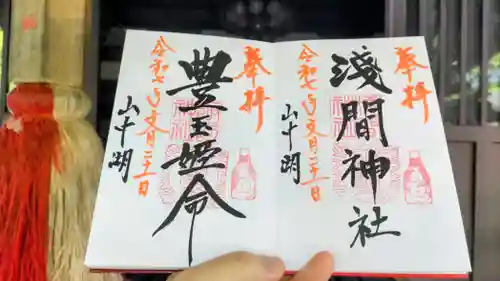 奉拝
淺間神社
令和七年文月二十一日
山中湖
奉拝
豊玉姫命
令和七年文月二十一日
山中湖